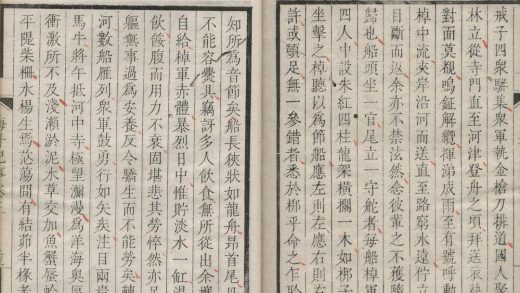 戒子四眾驛集眾軍執金槍刀排道國人聚
林立從寺門直至河津登舟之頃拜送哀
對面莫覩鳴鉦解纜揮涕成雨至有號呼動
棹中流夾岸沿河而送直至路窮水遠佇立
目斷而返余亦不禁泫然念彼輩之不獲隨
歸也船頭坐一官尾立一守舵者每船棹軍
四人中設朱紅四柱龍架橫擱一木如梆子
坐擊之棹聽以為節船應左則左應右則右
許或頓足無一參錯者悉於梆乎命之乍聆
知所為音節矣船長狹狀如龍舟昂首尾
不能容爨具竊訝多人飲食無所從出余
自給棹軍亦體暴烈日中惟貯淡水一缸渴
飲餒腹而用力不衰固堪悲其勞悴然亦足
軀無事過為安養反令驕生而不能勞矣轉
河數船雁列眾軍鼓勇行如矢矣注目兩岸
馬牛將午抵河中寺極望瀰漫為洋海奧
衝激所不及淺瀨淤泥水草交加魚蟹蜃
平隄柴柵水楊生焉茫蕩間有結茆半椽